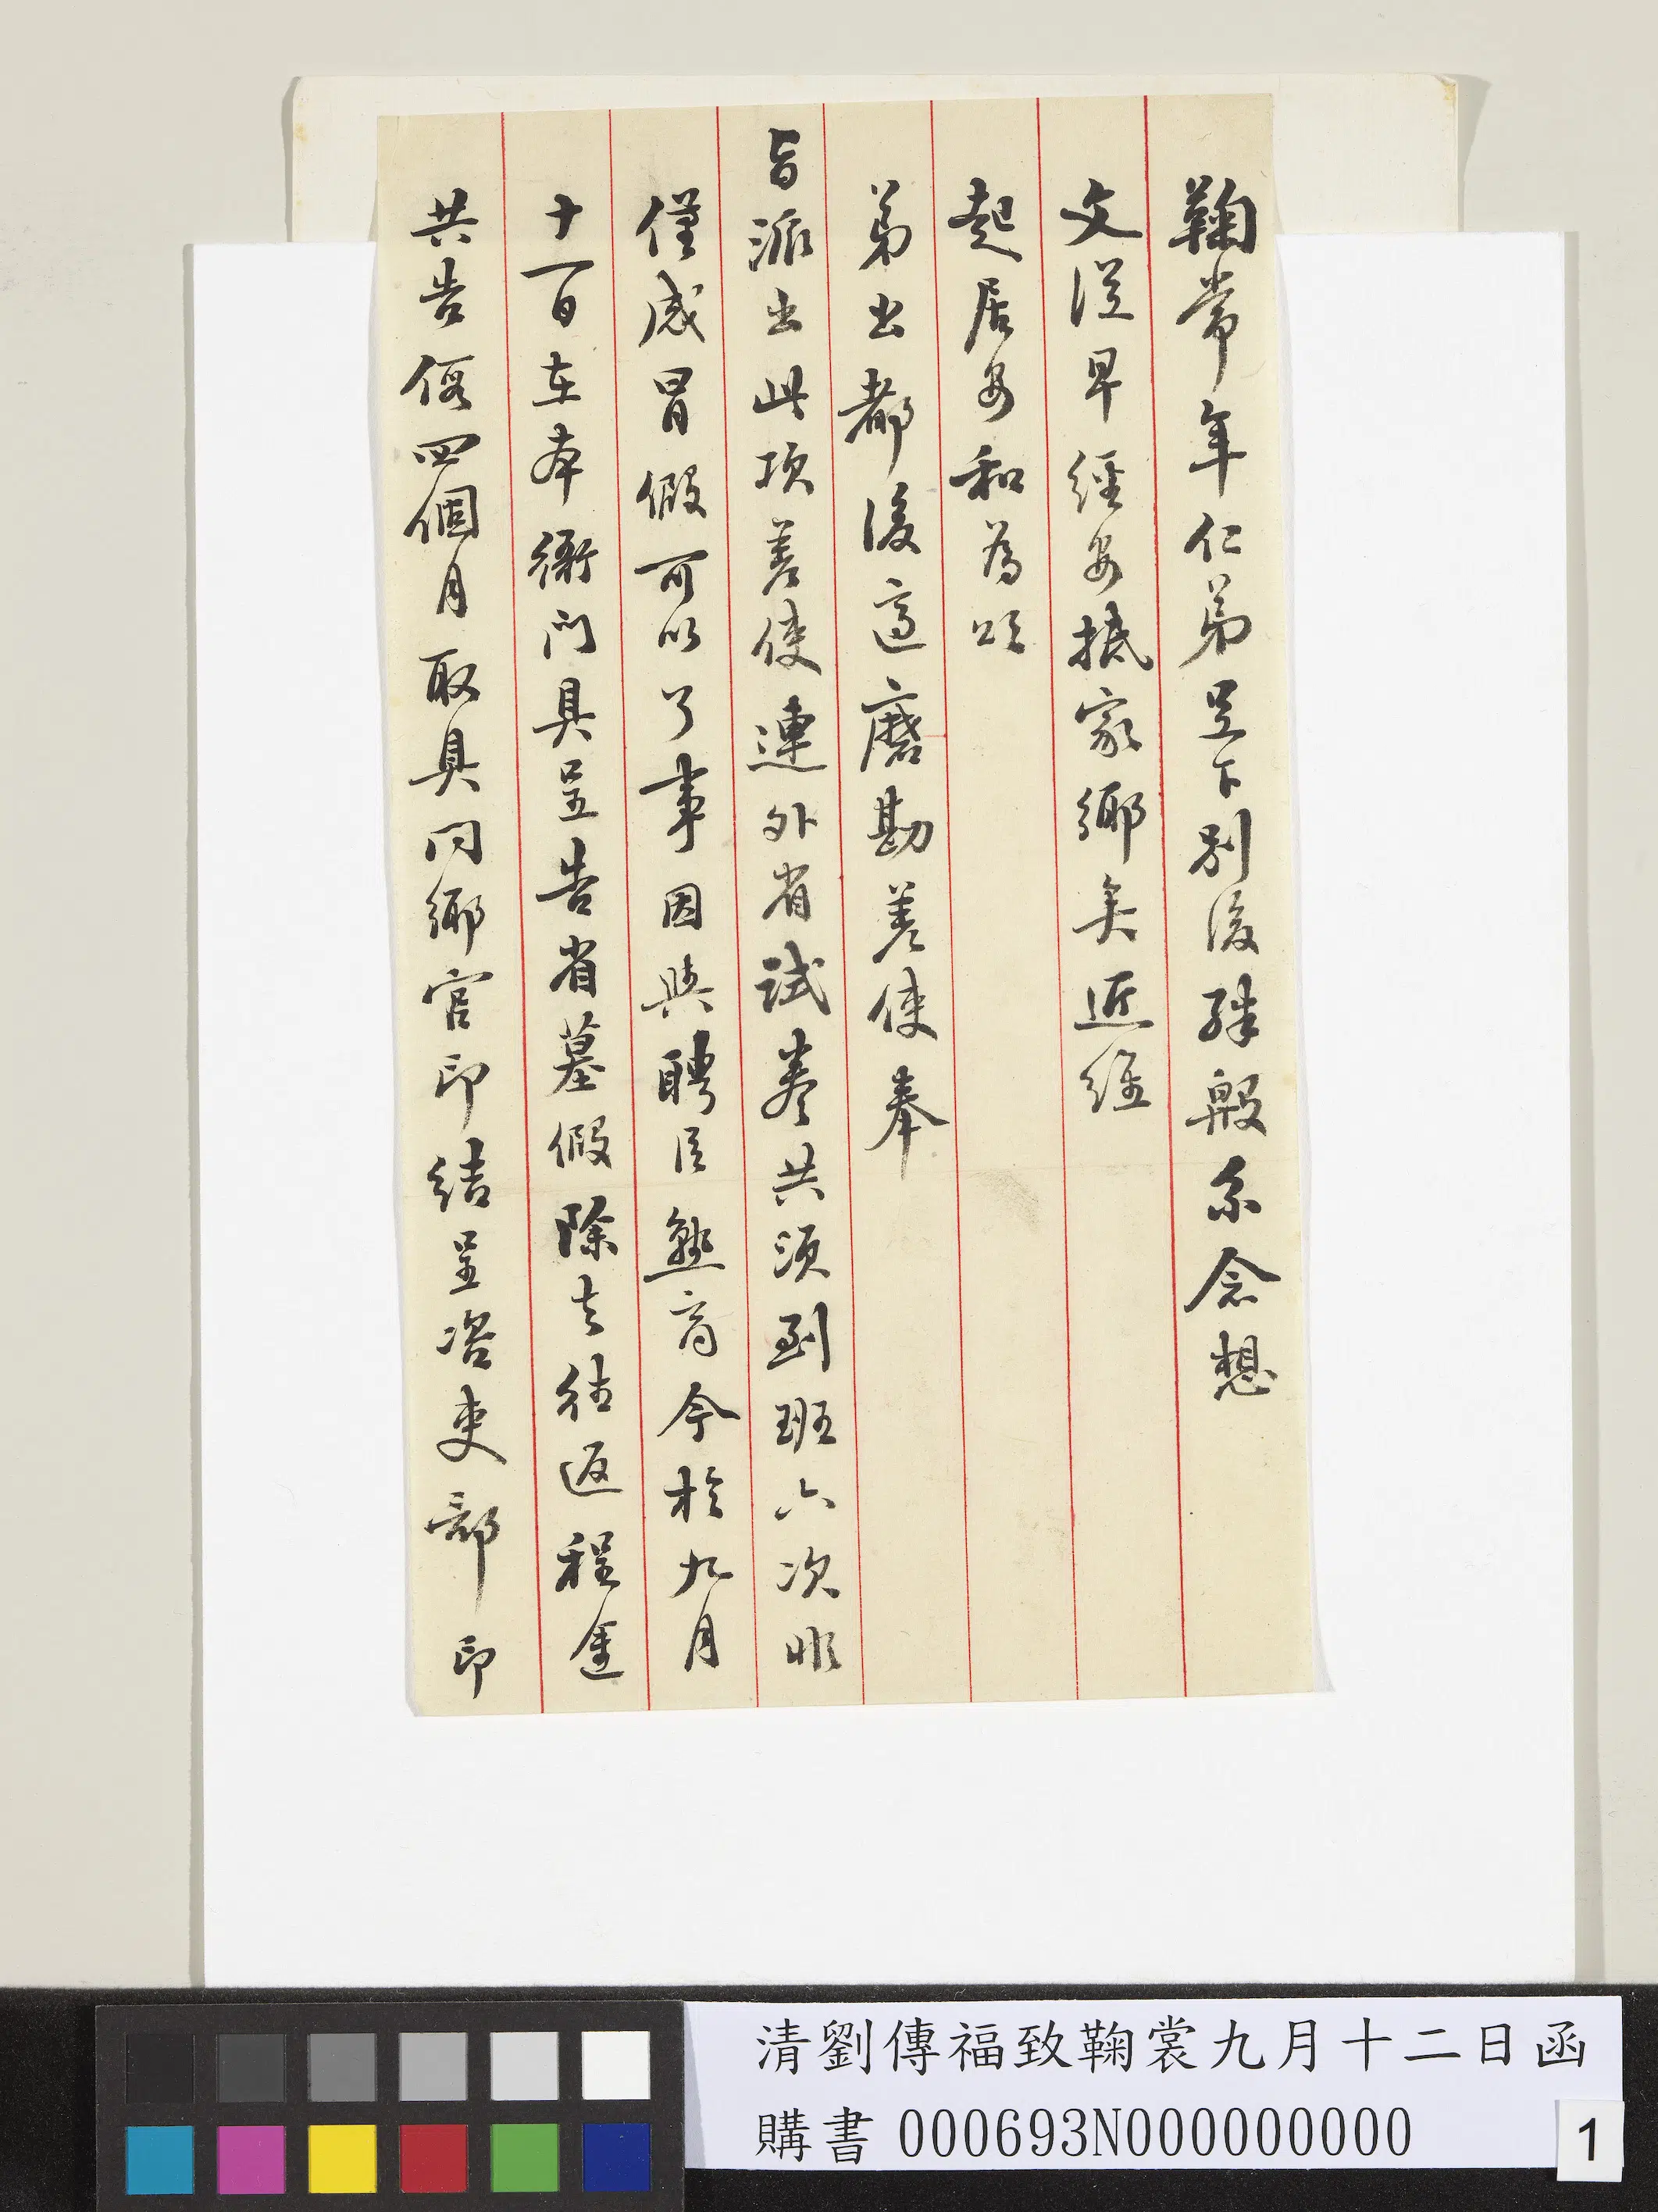 鞠常年仁弟足下別後殊殷系念想
文從早經安抵家鄉矣近維
起居安和為頌
弟出都後適磨勘差使奉
旨派出此項差使連外省試卷共須到班六次非
僅感冒假可以了事因與聘臣熟商今於九月
十一日在本衙門具呈告省墓假除去往返程途
共告假四個月取具同鄉官印結呈咨吏部印
清劉傳福致鞠裳九月十二日函
購書 000693N000000000
1